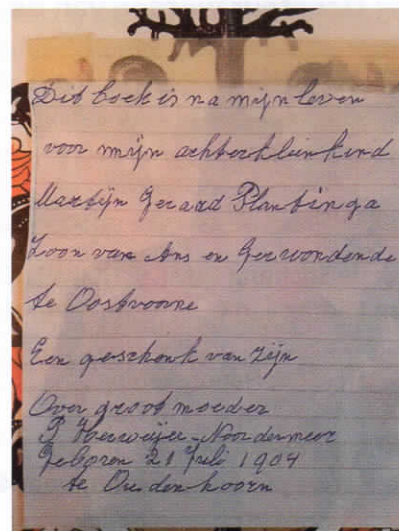 Dit boek is na mijn leven
voor mijn achterkleinkind
Martijn Geraard Plantinga
Zoon van Ans en Ger wondende
te Oostvoorne
Een geschenk van zijn
Over groot moeder
P Noordermeer
Geboren 21 Juli 1904
te Oudenhoorn